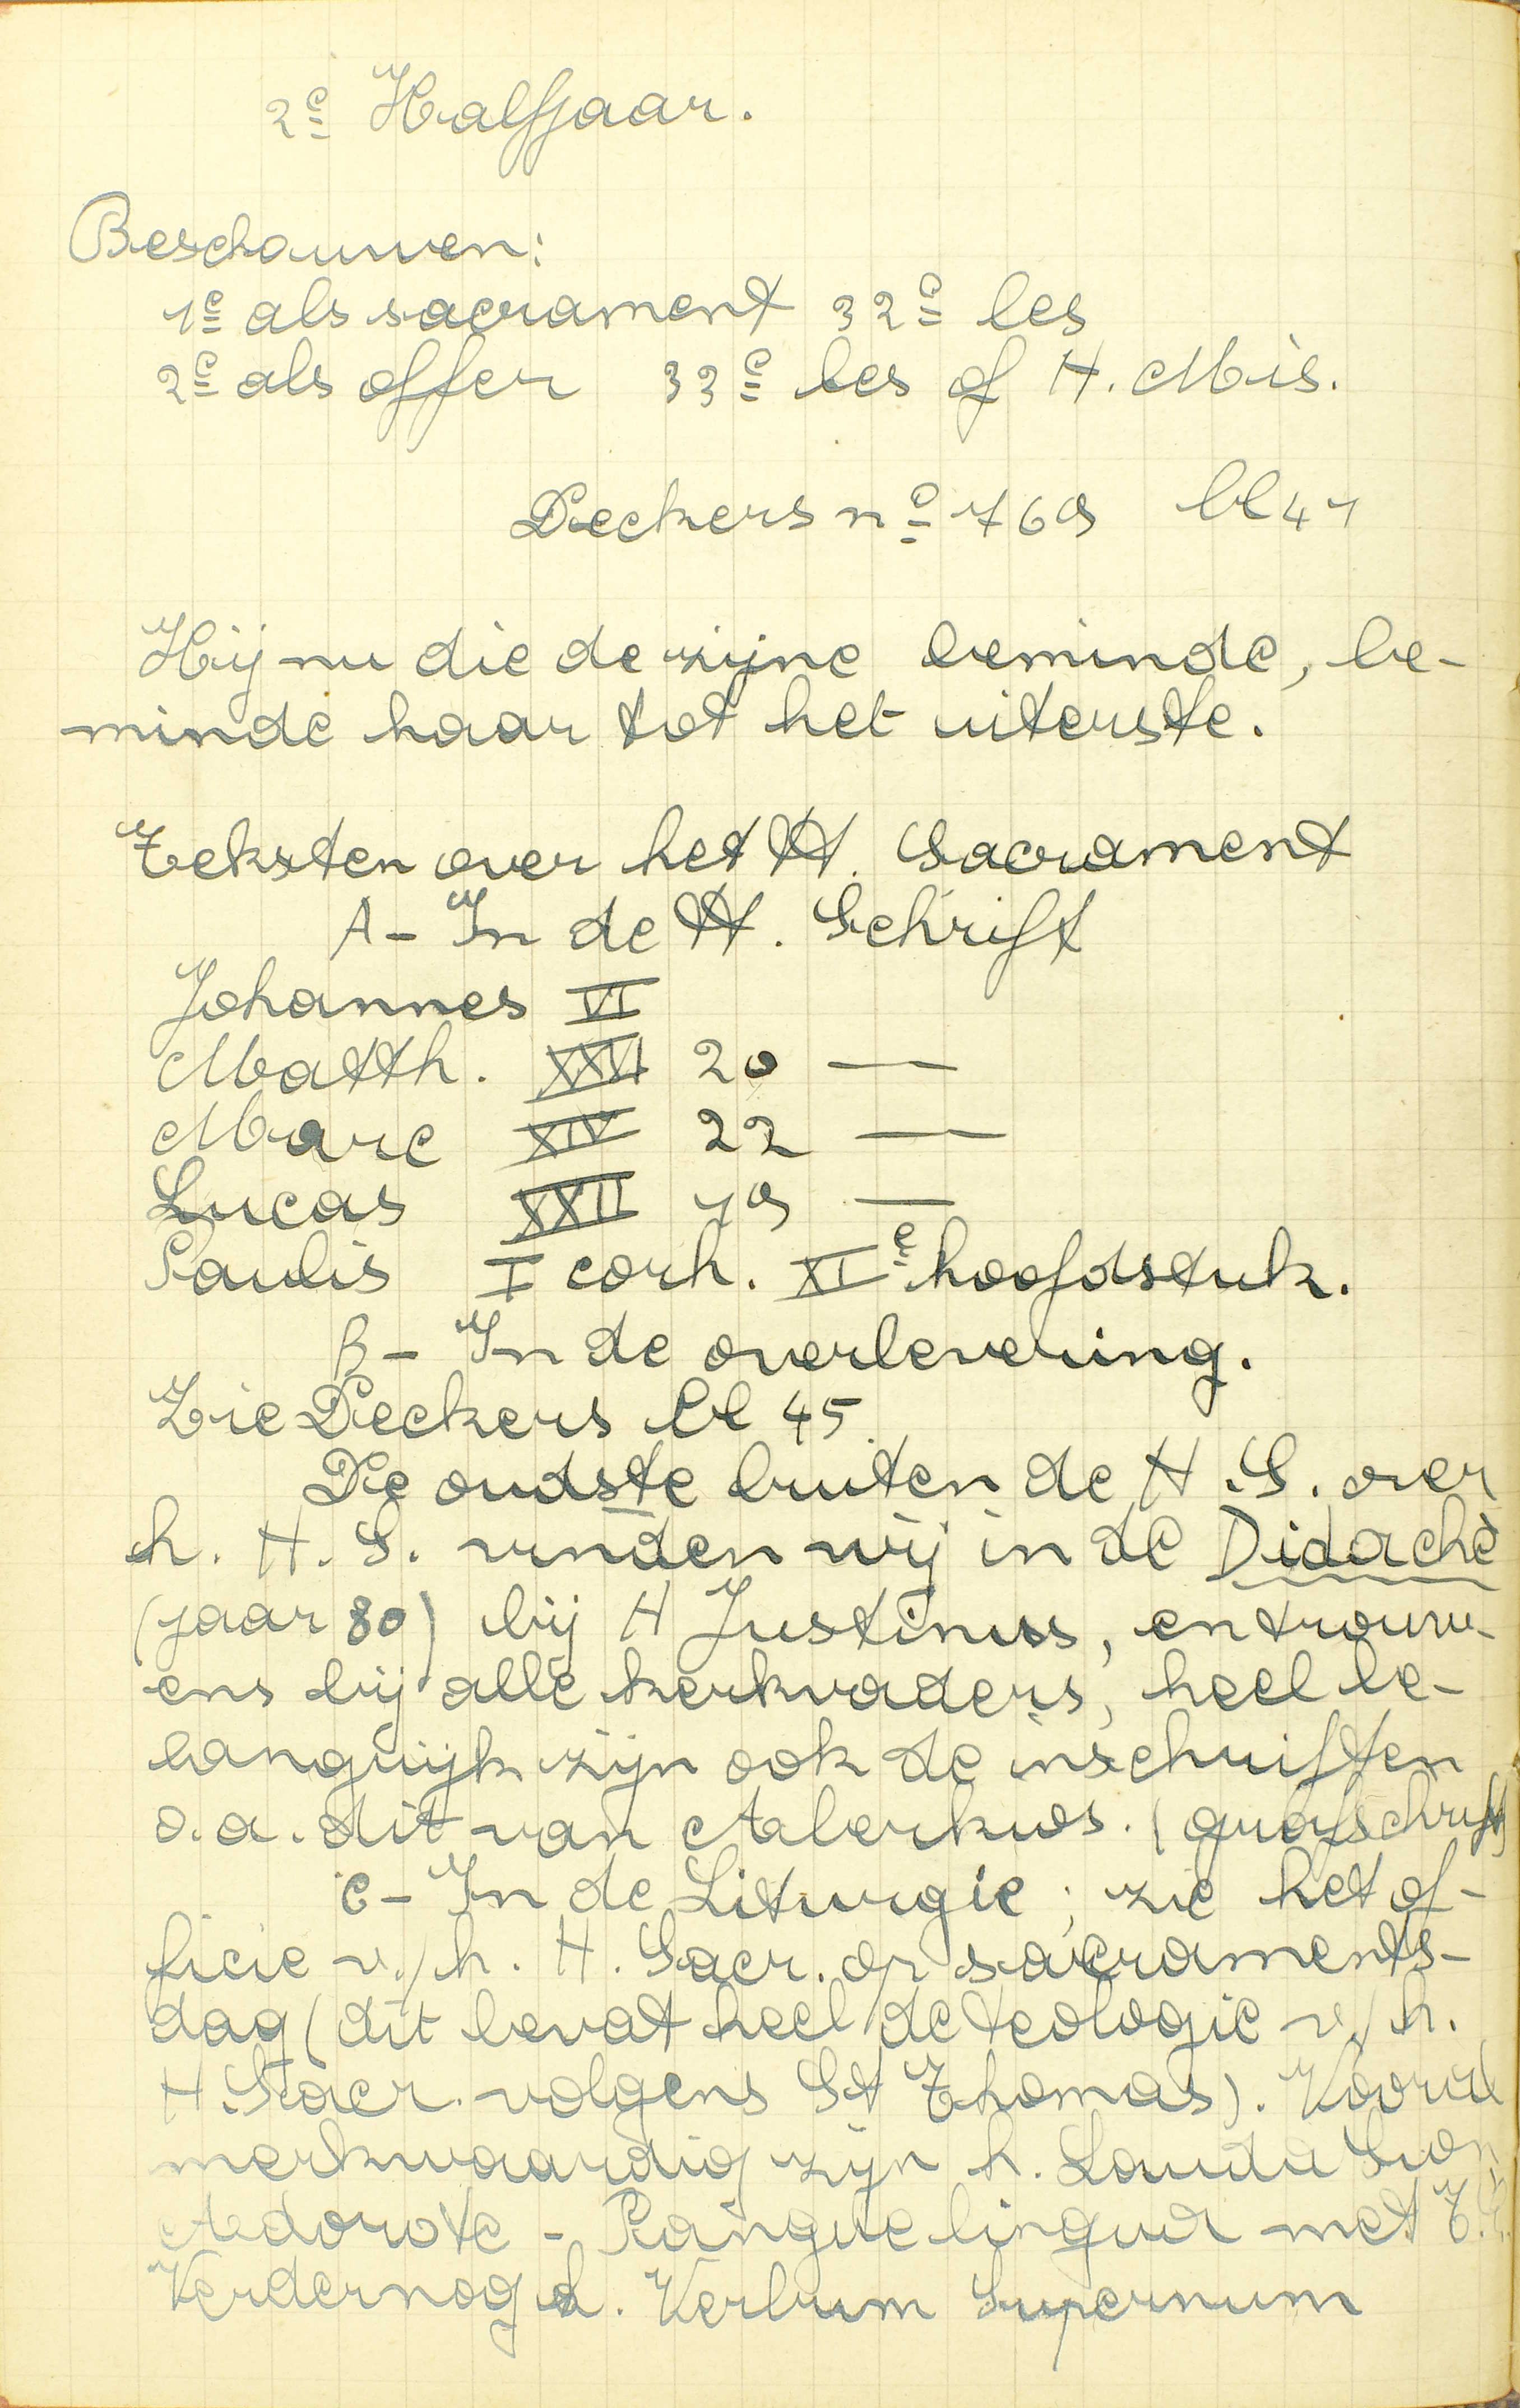 2e Halfjaar.
Beschouwen:
1e als sacrament 32e les
2e als offer 33e les of H. Mis.
Deckers no 769 bl 41
Hij nu die de zijne beminde, be-
minde haar tot het uiterste.
Teksten over het H. Sacrament
A - In de H. Schrift
Johannes VI
Matth. XXVI 20 —
Marc XIV 22 —
Lucas XXII 19 —
Paulis I corh. XIe hoofdstuk.
B - In de overlevering.
Zie Deckers bl 45
De oudste buiten de H.S. over
h. H. S. vinden wij in de Didachè
(jaar 80) bij H Justinus, en trouw-
ens bij alle kerkvaders, heel be-
langrijk zijn ook de inschriften
o.a. dit van Aberkios. (grafschrift)
C - In de Liturgie; zie het of-
ficie v/h. H. Sacr. op sacraments-
dag (dit bevat heel de teologie v/h.
H. Sacr. volgens St Thomas). Vooral
merkwaardig zijn h. Lauda Sion
Adorote - Pange lingua met T.E.
Verder nog h. Verbum Supernum